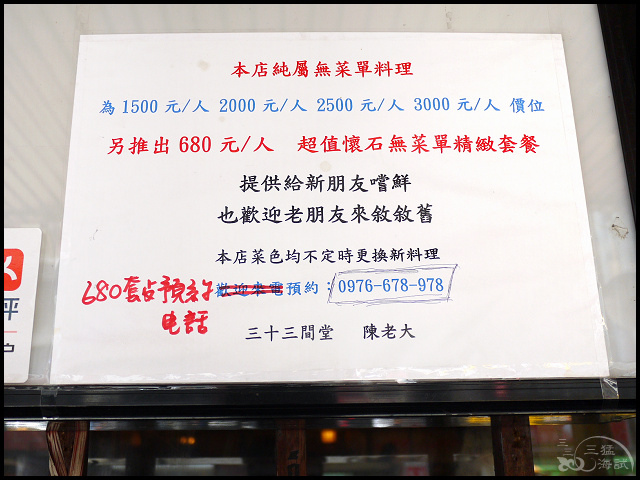 本店純屬無菜單料理
為 1500 元/人 2000 元/人 2500 元/人 3000 元/人 價位
另推出 680 元/人 超值懷石無菜單精緻套餐
提供給新朋友嚐鮮
也歡迎老朋友來敘敘舊
本店菜色均不定時更換新料理
680套餐預約 歡迎來電預約：0976-678-978
电話
三十三間堂 陳老大
評
三三 三猛海試